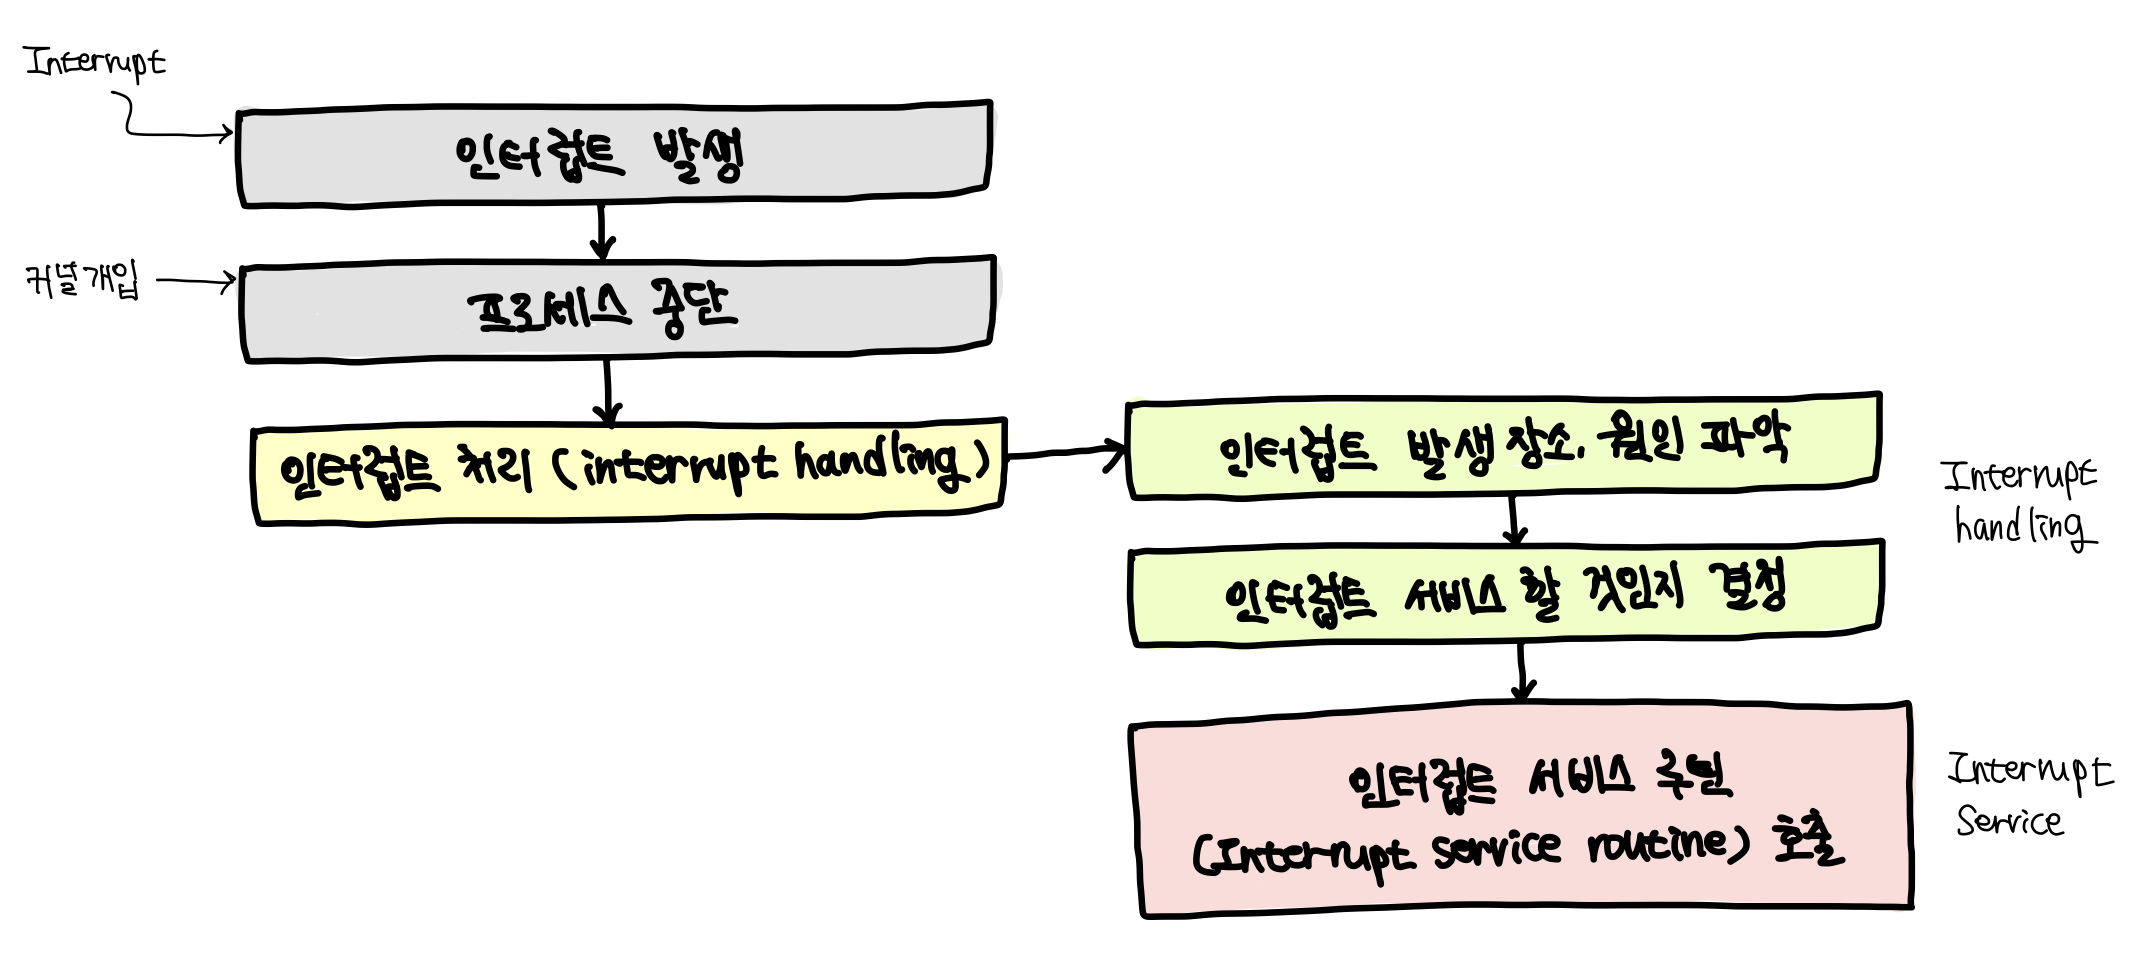 Interrupt
인터럽트 발생
커널개입
프로세스 중단
인터럽트 처리 (interrupt handling)
인터럽트 발생 장소, 원인 파악
인터럽트 서비스 할 것인지 결정
Interrupt
handling
인터럽트 서비스 루틴
(Interrupt service routine) 호출
Interrupt
Service